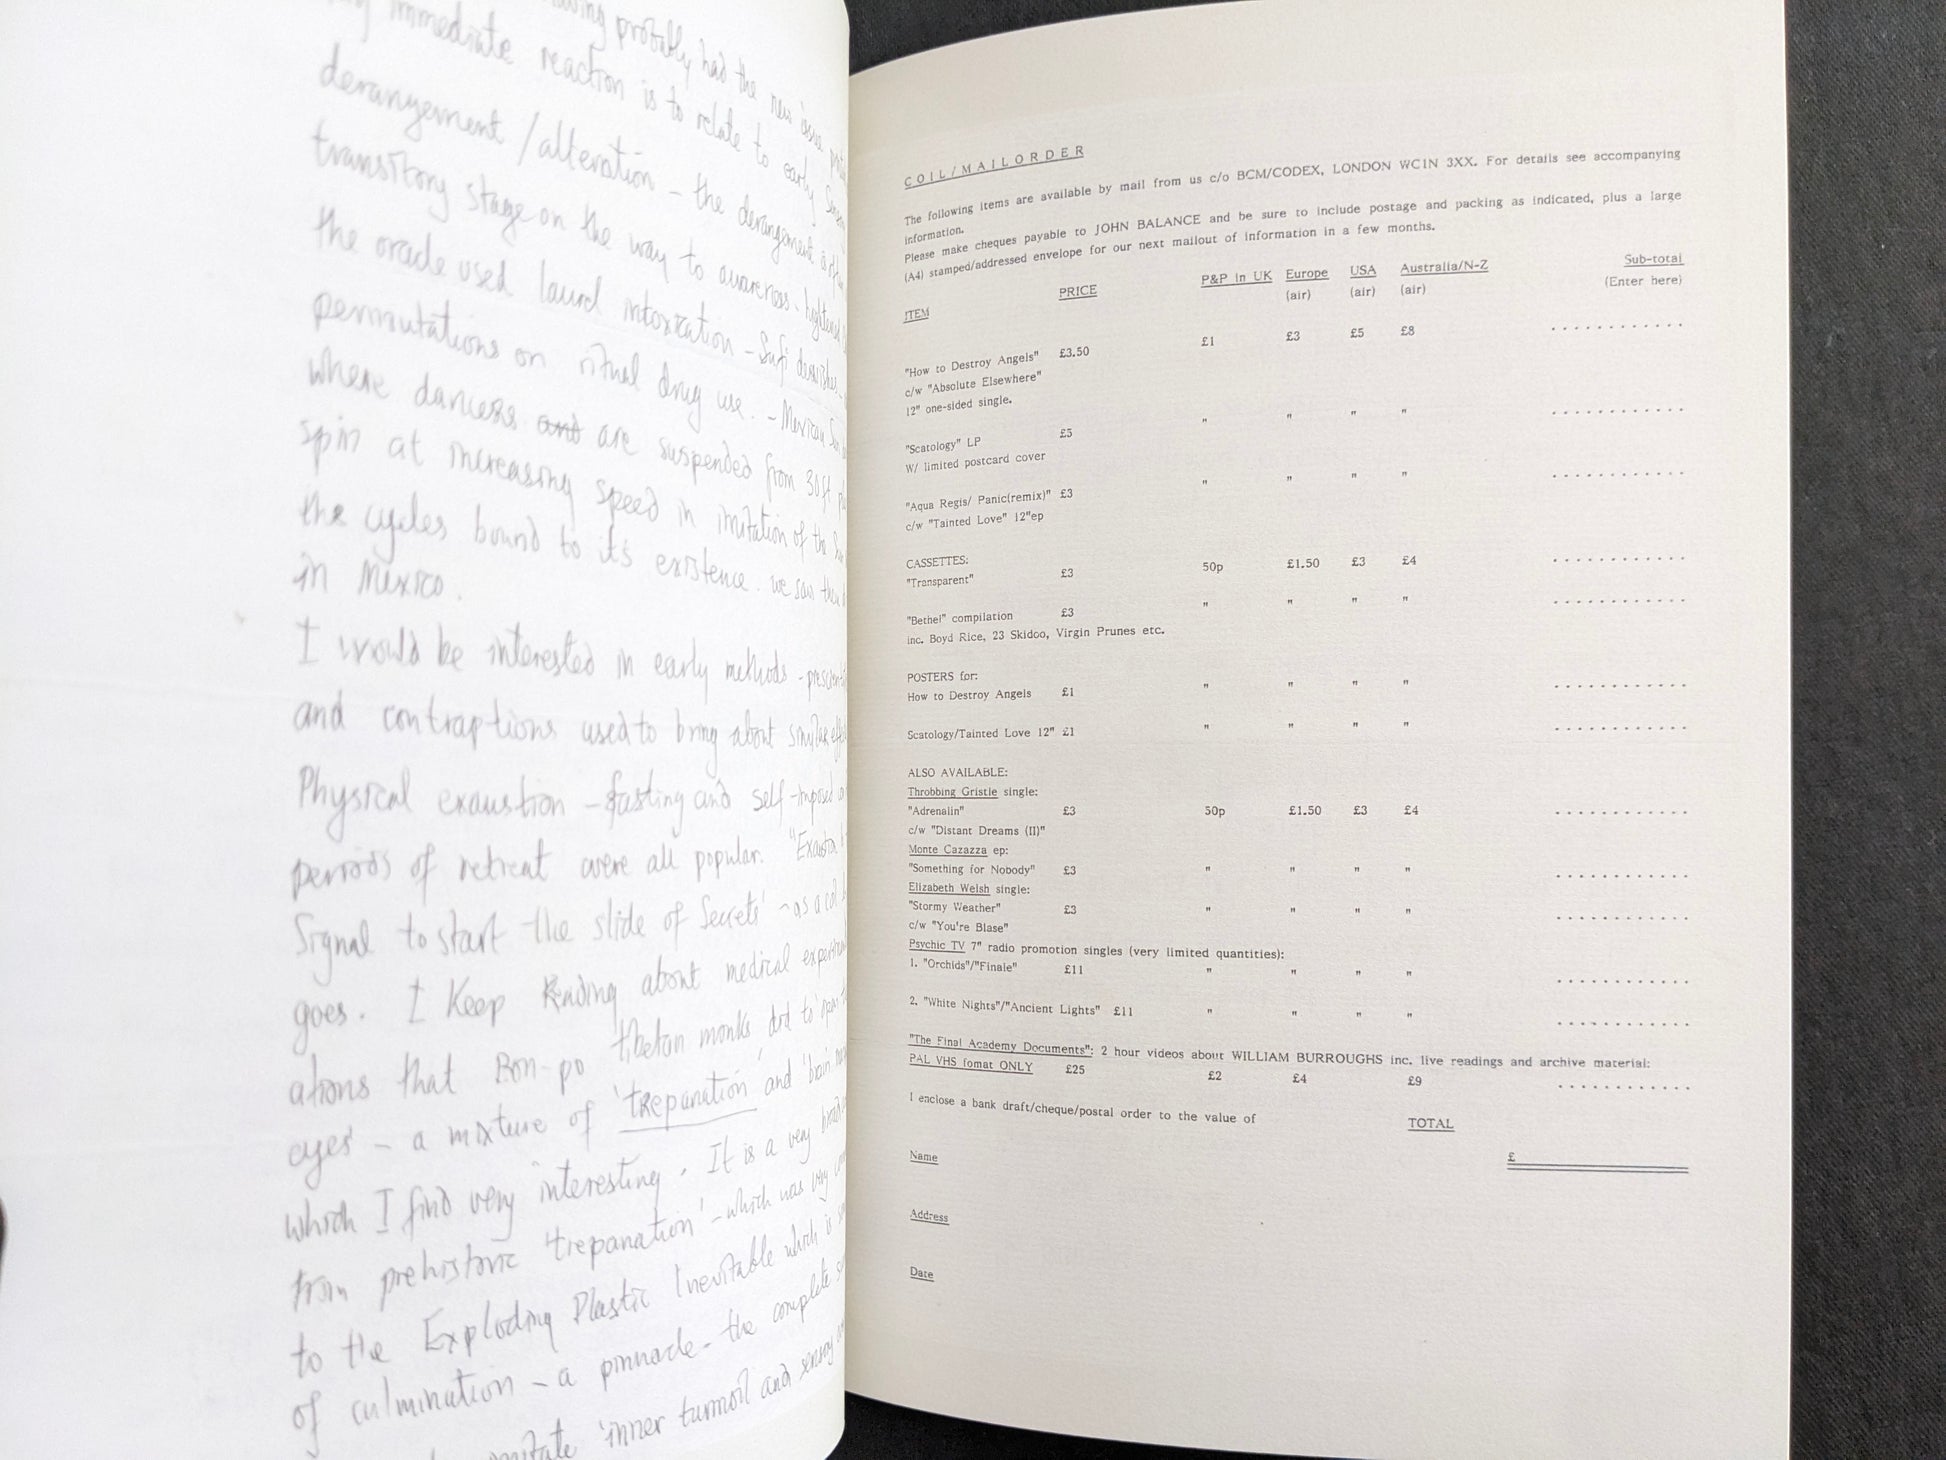 having probably had the new issue
immediate reaction is to relate to early
derangement / alteration – the derangement is often
transitory stage on the way to awareness – hightened
the oracle used laurel intoxication – Sufi dervishes –
permutations on ritual drug use. – Mexican Sun
where dancers and are suspended from 30ft
spin at increasing speed in imitation of the Sun
the cycles bound to it's existence. we saw them
in Mexico.
I would be interested in early methods –
and contraptions used to bring about similar
Physical exaustion – fasting and self-imposed
periods of retreat were all popular.
Signal to start the slide of Secrets' – as a
goes. I Keep Reading about medical experim
ations that Bon-po tibetan monks did to 'open
eyes' – a mixture of 'trepanation' and 'brain
which I find very interesting. It is a very broad
from prehistoric 'trepanation' – which was very
to the Exploding Plastic Inevitable which is
of culmination – a pinnacle – the complete
'inner turmoil and sensory
COIL/MAILORDER
The following items are available by mail from us c/o BCM/CODEX, LONDON WC1N 3XX. For details see accompanying
information.
Please make cheques payable to JOHN BALANCE and be sure to include postage and packing as indicated, plus a large
(A4) stamped/addressed envelope for our next mailout of information in a few months.
ITEM PRICE P&P in UK Europe (air) USA (air) Australia/N-Z (air) Sub-total (Enter here)
"How to Destroy Angels" £3.50 £1 £3 £5 £8 . . . . . . . . . . . .
c/w "Absolute Elsewhere"
12" one-sided single.
"Scatology" LP £5 " " " " . . . . . . . . . . . .
W/ limited postcard cover
"Aqua Regis/ Panic(remix)" £3 " " " " . . . . . . . . . . . .
c/w "Tainted Love" 12"ep
CASSETTES:
"Transparent" £3 50p £1.50 £3 £4 . . . . . . . . . . . .
"Bethel" compilation £3 " " " " . . . . . . . . . . . .
inc. Boyd Rice, 23 Skidoo, Virgin Prunes etc.
POSTERS for:
How to Destroy Angels £1 " " " " . . . . . . . . . . . .
Scatology/Tainted Love 12" £1 " " " " . . . . . . . . . . . .
ALSO AVAILABLE:
Throbbing Gristle single:
"Adrenalin" £3 50p £1.50 £3 £4 . . . . . . . . . . . .
c/w "Distant Dreams (II)"
Monte Cazazza ep:
"Something for Nobody" £3 " " " " . . . . . . . . . . . .
Elizabeth Welsh single:
"Stormy Weather" £3 " " " " . . . . . . . . . . . .
c/w "You're Blase"
Psychic TV 7" radio promotion singles (very limited quantities):
1. "Orchids"/"Finale" £11 " " " " . . . . . . . . . . . .
2. "White Nights"/"Ancient Lights" £11 " " " " . . . . . . . . . . . .
"The Final Academy Documents": 2 hour videos about WILLIAM BURROUGHS inc. live readings and archive material:
PAL VHS fomat ONLY £25 £2 £4 £9 . . . . . . . . . . . .
I enclose a bank draft/cheque/postal order to the value of TOTAL
£
Name
Address
Date